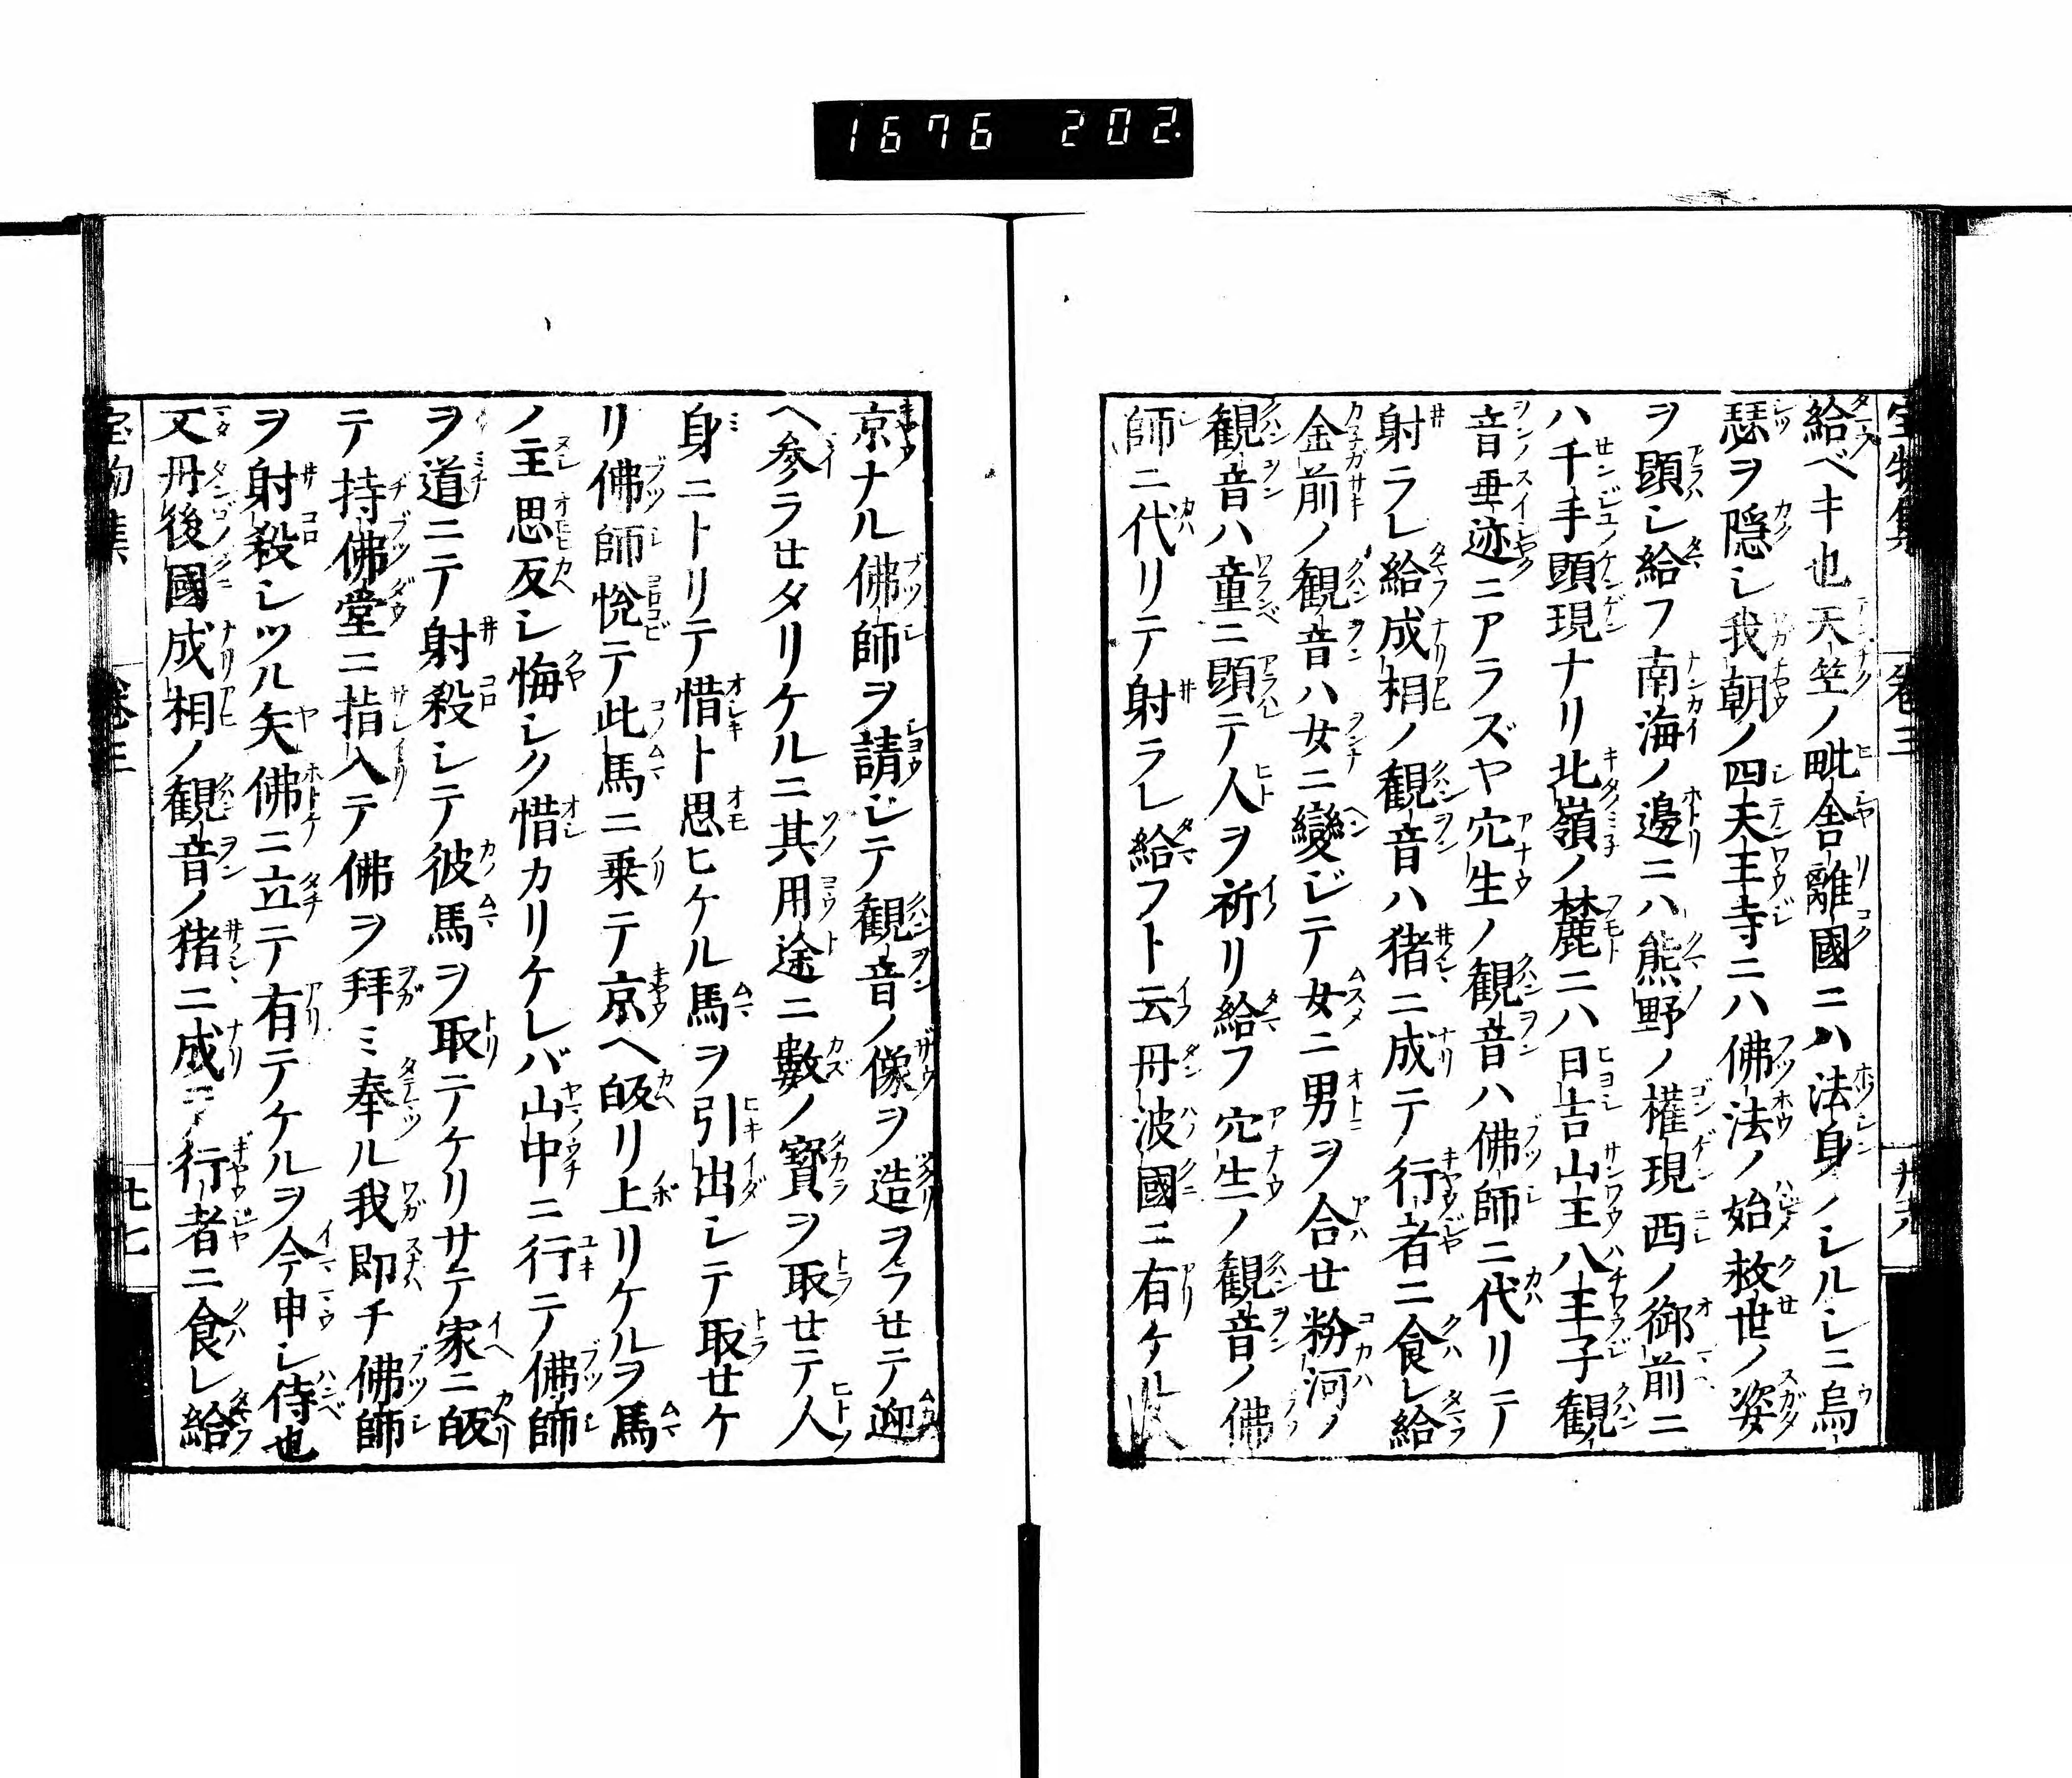 1676 202.
給ベキ也天竺ノ毗舎離國ニハ法身ノシルシニ烏
瑟ヲ隠シ我朝ノ四天王寺ニハ佛法ノ始救世ノ姿
ヲ顕シ給フ南海ノ邊ニハ熊野ノ權現西ノ御前ニ
ハ千手顕現ナリ北嶺ノ麓ニハ日吉山王八王子観
音垂迹ニアラズヤ穴生ノ観音ハ佛師ニ代リテ
射ラレ給成相ノ観音ハ猪ニ成テ行者ニ食レ給
金前ノ観音ハ女ニ變ジテ女ニ男ヲ合セ粉河ノ
観音ハ童ニ顕テ人ヲ祈リ給フ穴生ノ観音ノ佛
師ニ代リテ射ラレ給フト云丹波國ニ有ケル
京ナル佛師ヲ請シテ観音ノ像ヲ造ヲラセテ迎
ヘ参ラセタリケルニ其用途ニ數ノ寳ヲ取セテ人
身ニトリテ惜ト思ヒケル馬ヲ引出シテ取セケ
リ佛師悦テ此馬ニ乗テ京ヘ皈リ上リケルヲ馬
ノ主思反シ悔シク惜カリケレバ山中ニ行テ佛師
ヲ道ニテ射殺シテ彼馬ヲ取テケリサテ家ニ皈
テ持佛堂ニ指入テ佛ヲ拜ミ奉ル我即チ佛師
ヲ射殺シツル矢佛ニ立テ有テケルヲ今申シ侍也
又丹後國成相ノ観音ノ猪ニ成テ行者ニ食レ給